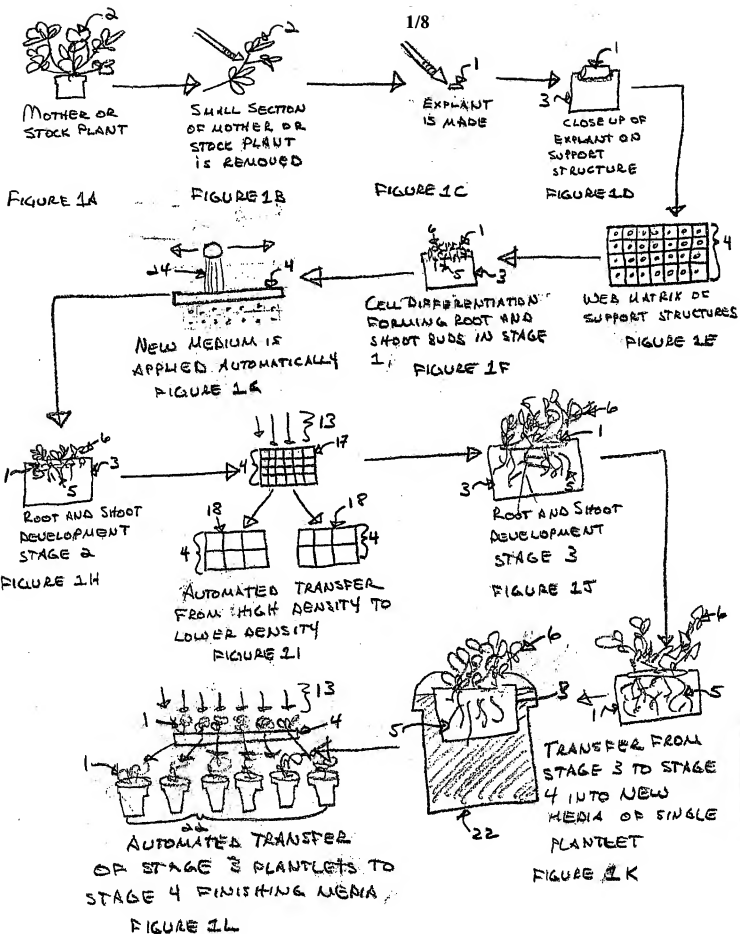 1/8
2
3
MOTHER OR
STOCK PLANT
FIGURE 1A
2
SMALL SECTION
OF MOTHER OR
STOCK PLANT
IS REMOVED
FIGURE 1B
1
EXPLANT
IS MADE
FIGURE 1C
1
3
CLOSE UP OF
EXPLANT ON
SUPPORT
STRUCTURE
FIGURE 1D
4
WEB MATRIX OF
SUPPORT STRUCTURES
FIGURE 1E
6
1
5
3
CELL DIFFERENTIATION
FORMING ROOT AND
SHOOT BUDS IN STAGE
1,
FIGURE 1F
24
4
NEW MEDIUM IS
APPLIED AUTOMATICALLY
FIGURE 1G
6
1
3
5
ROOT AND SHOOT
DEVELOPMENT
STAGE 2
FIGURE 1H
13
17
4
18
18
4
4
AUTOMATED TRANSFER
FROM HIGH DENSITY TO
LOWER DENSITY
FIGURE 1I
6
1
3
5
ROOT AND SHOOT
DEVELOPMENT
STAGE 3
FIGURE 1J
6
5
1
6
3
5
22
TRANSFER FROM
STAGE 3 TO STAGE
4 INTO NEW
MEDIA OF SINGLE
PLANTLET
FIGURE 1K
13
1
4
1
22
AUTOMATED TRANSFER
OF STAGE 3 PLANTLETS TO
STAGE 4 FINISHING MEDIA,
FIGURE 1L